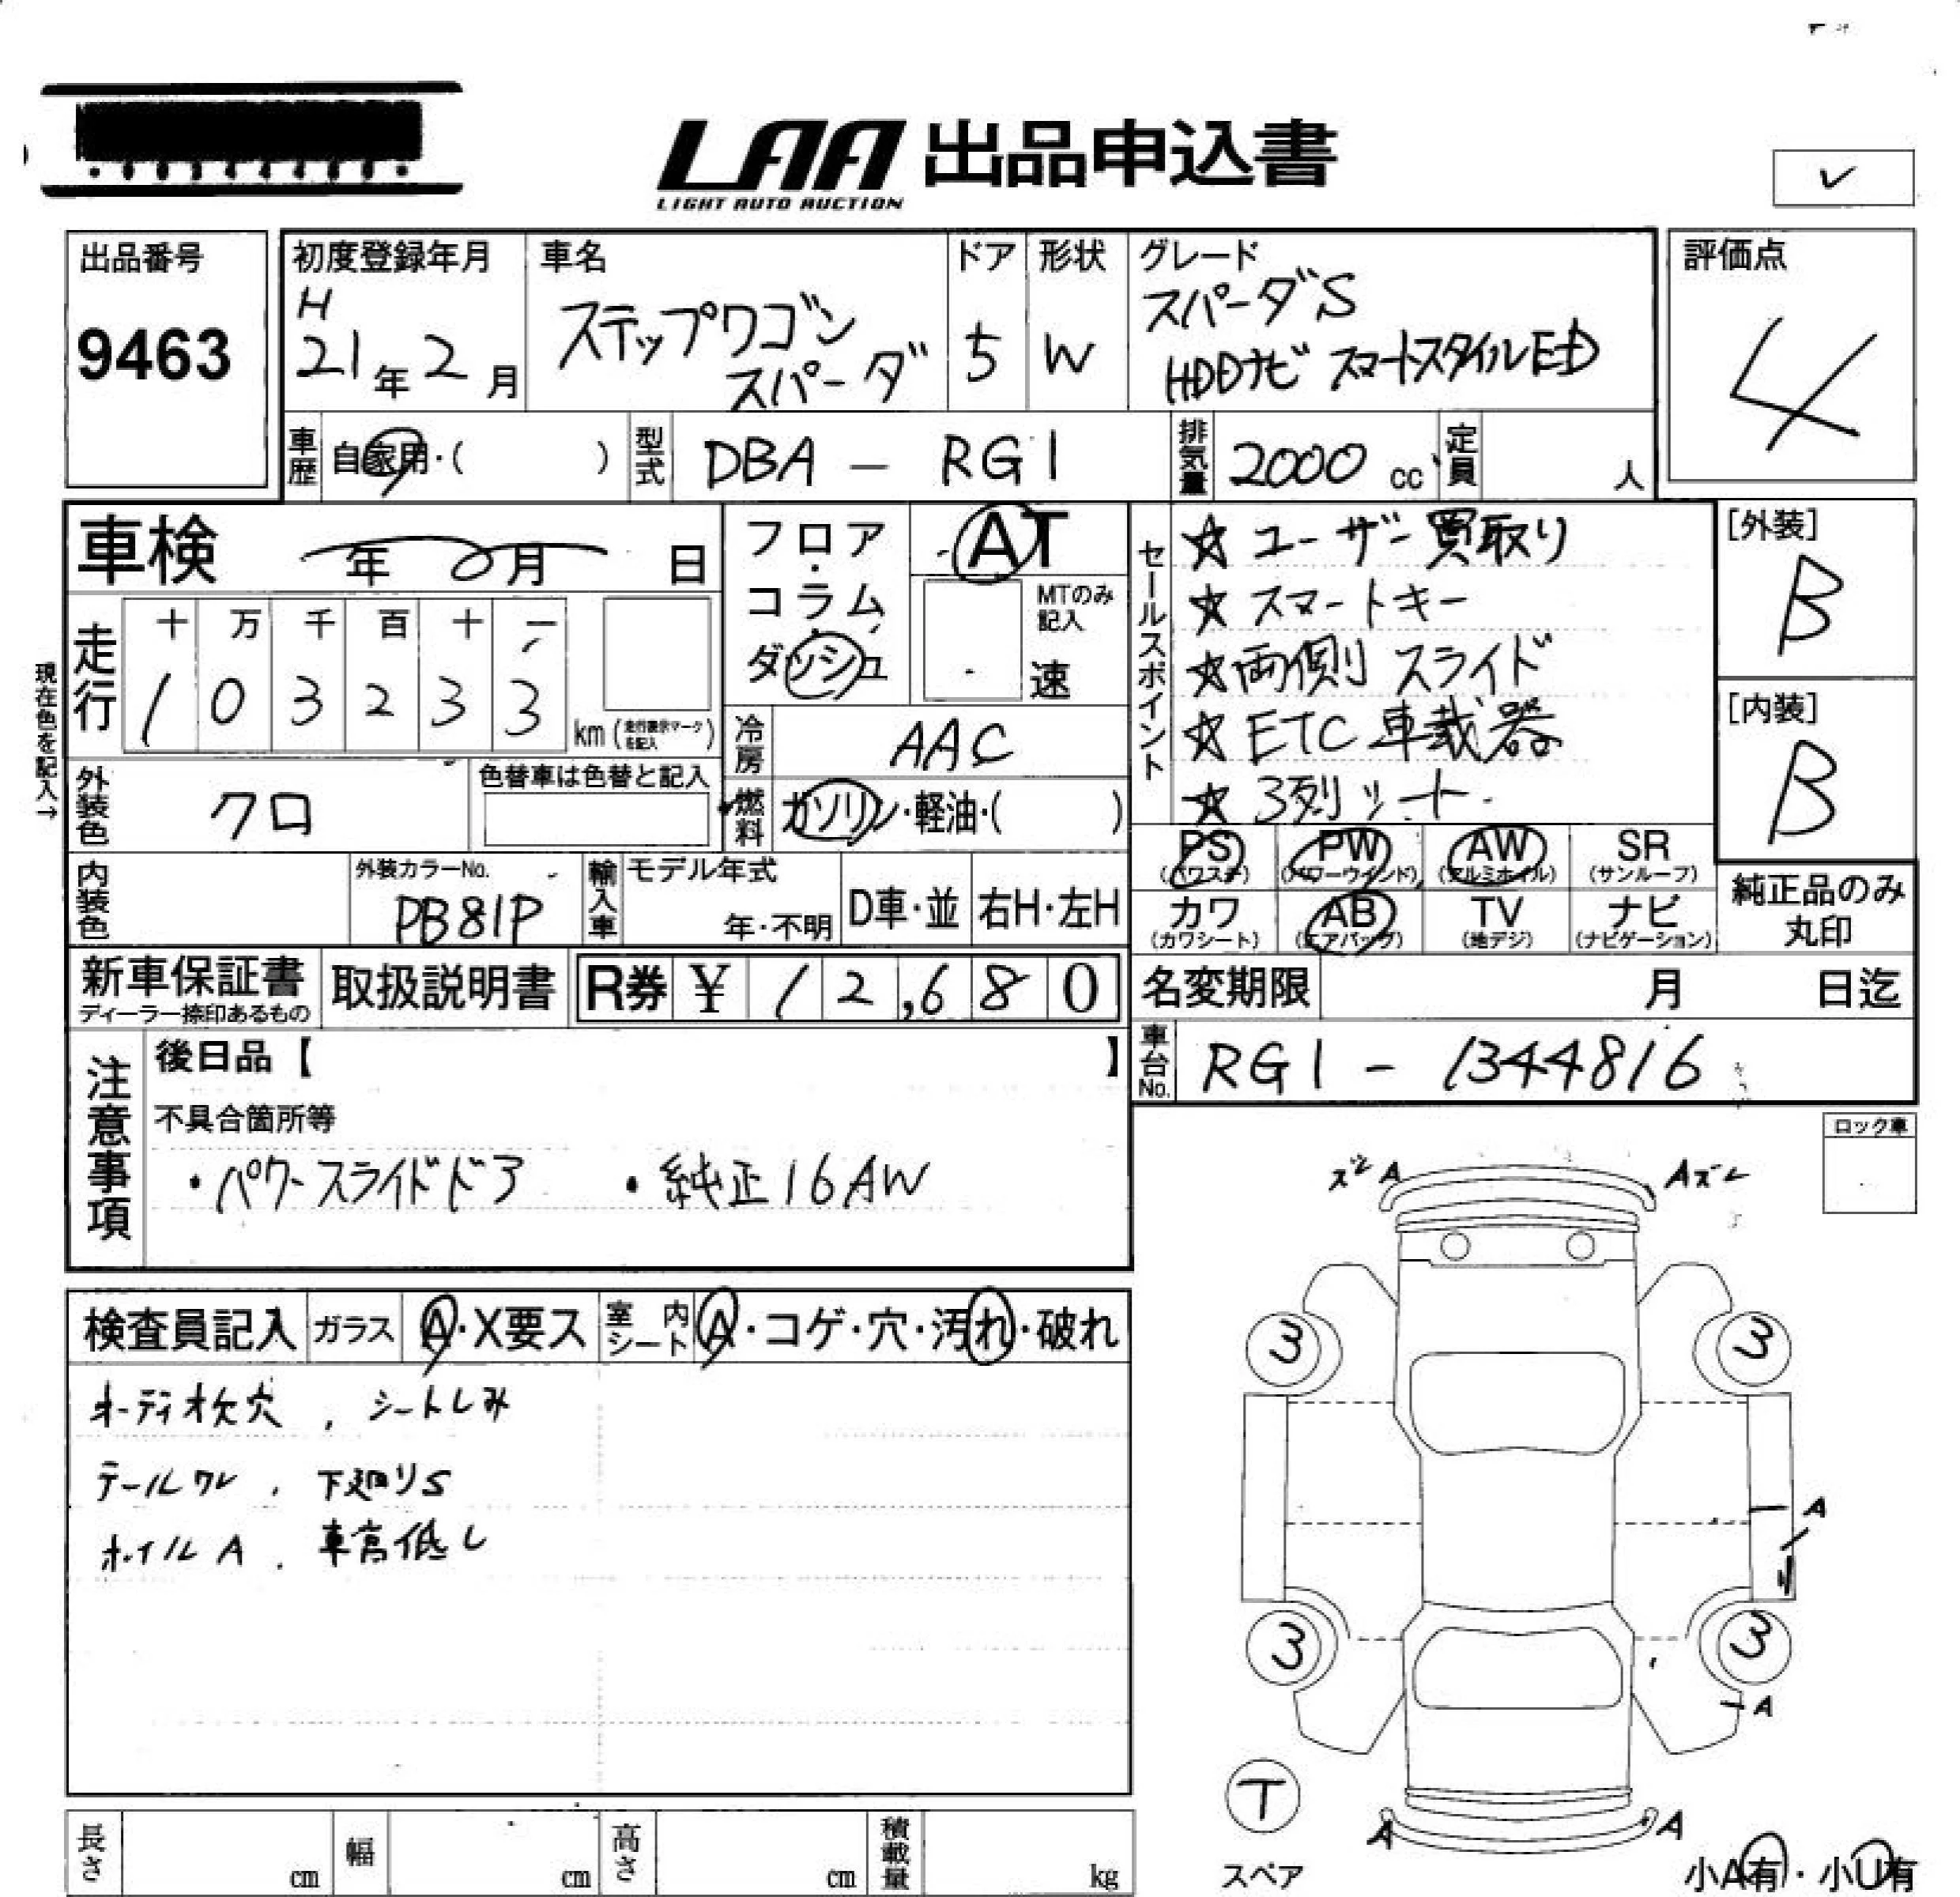 LAA 出品申込書
LIGHT AUTO AUCTION
出品番号
9463
初度登録年月
H
21年2月
車名
ステップワゴン
スパーダ
ドア
5
形状
W
グレード
スパーダS
HDDナビ スマートスタイルED
評価点
4
車歴 自家用・( )
型式 DBA - RG1
排気量 2000 cc
定員 人
車検 年 月 日
フロア・コラム・ダッシュ
AT
MTのみ記入
速
セールスポイント
☆ ユーザー買取り
☆ スマートキー
☆ 両側スライド
☆ ETC車載器
☆ 3列シート
[外装]
B
[内装]
B
現在色を記入→
走行
十 万 千 百 十 一
1 0 3 2 3 3
km (走行表示マークを記入)
冷房 AAC
外装色 クロ
色替車は色替と記入
燃料 ガソリン・軽油・( )
PS (パワステ) PW (パワーウインド) AW (アルミホイル) SR (サンルーフ)
カワ (カワシート) AB (エアバッグ) TV (地デジ) ナビ (ナビゲーション)
純正品のみ
丸印
内装色
外装カラーNo.
PB81P
輸入車
モデル年式
年・不明
D車・並
右H・左H
新車保証書
ディーラー捺印あるもの
取扱説明書
R券 ¥ 12,680
名変期限 月 日迄
車台No. RG1 - 1344816
注意事項
後日品【 】
不具合箇所等
・パワースライドドア ・純正16AW
ロック車
ズレ A
A ズレ
検査員記入 ガラス A・X要ス 室内シート A・コゲ・穴・汚れ・破れ
オーディオ欠穴、シートしみ
テールワレ、下廻りS
ホイルA、車高低し
3
3
A
3
3
A
T
スペア
A
A
小A有・小U有
長さ cm
幅 cm
高さ cm
積載量 kg